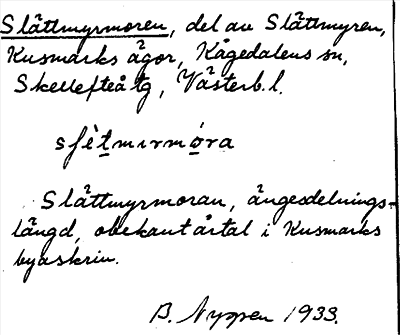 Slåttmyrmoren, del av Slåttmyren,
Kusmarks ägor, Kågedalens sn,
Skellefteå tg, Västerb. l.
Slåttmyrmoran, ängesdelnings-
längd, obekant årtal i Kusmarks
byaskrin.
B. Nygren 1933.